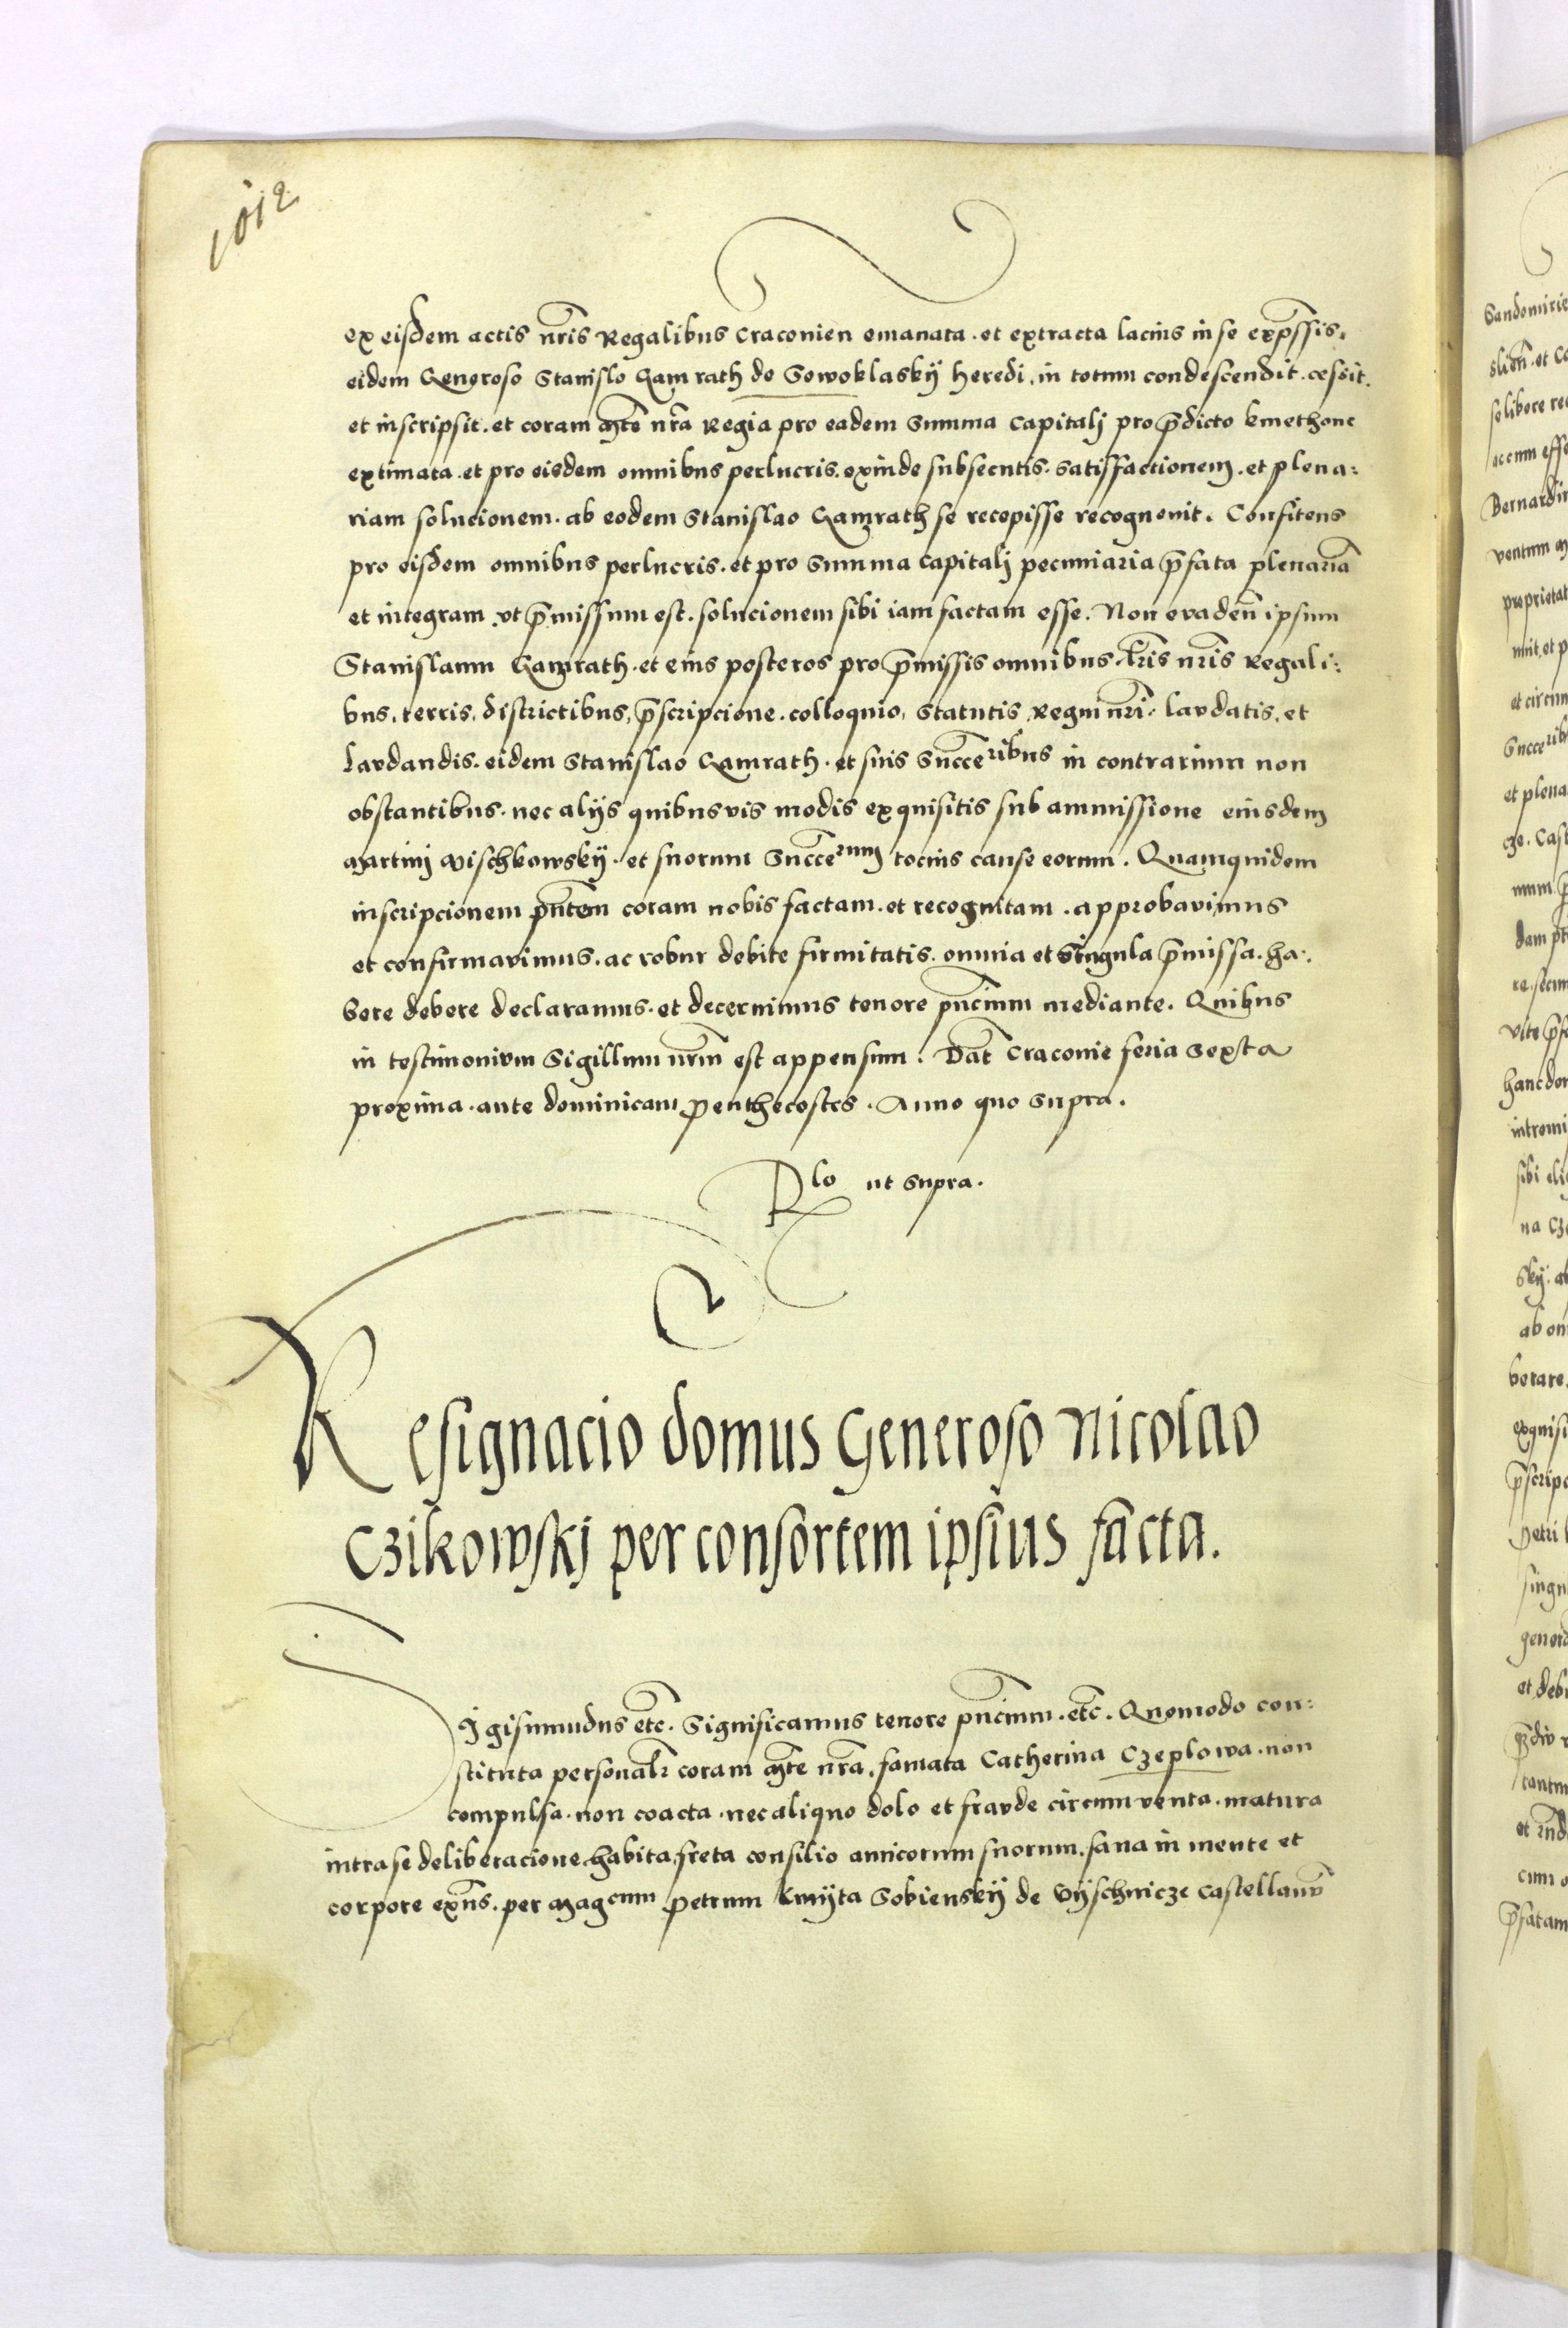 1012
ex eisdem actis nr̃is Regalibus Craconien emanata . et extracta lacius in se exp̃ssis.
eidem Generoso Stanislo Gamrath de Sowoklasky heredi . in totum condescendit . cessit .
et inscripsit . et coram Mte nr̃a Regia pro eadem Summa Capitalj pro p̃dicto kmethone
extimata . et pro eisdem omnibus perlucris . exinde subsecutis . satisfactionem . et plena:
riam solucionem . ab eodem Stanislao Gamrath se recepisse recognovit . Confitens
pro eisdem omnibus perlucris . et pro Summa Capitalj pecuniaria p̃fata plenariã
et integram . vt p̃missum est . solucionem sibi iam factam esse . Non evadeñ ipsum
Stanislaum Gamrath . et eius posteros pro p̃missis omnibus . lr̃is nr̃is Regali:
bus . terris . districtibus, p̃scripcione . colloquio, statutis Regni nr̃i . laudatis, et
laudandis . eidem Stanislao Gamrath . et suis Succeribus in contrarium non
obstantibus . nec alijs quibusvis modis exquisitis sub ammissione eiusdem
Martinj Mischkowsky . et suorum Succerum tocius cause eorum . Quamquidem
inscripcionem pñtem coram nobis factam . et recognitam . approbavimus
et confirmavimus . ac robur debite firmitatis . omnia et singula p̃missa . ha:
bere debere declaramus . et decernimus tenore pñcium mediante . Quibus
in testimonivm Sigillum nr̃m est appensum . Dat̃ Craconie feria Sexta
proxima . ante dominicam Penthecostes . Anno quo Supra .
Rlo ut Supra .
Resignacio domus Generoso Nicolao
Czikowskj per consortem ipsius facta .
Sigismundus etc̃ . Significamus tenore pñcium . etc̃ . Quomodo con:
stituta personalr̃ coram Mte nr̃a . famata Catherina Czeplowa . non
compulsa . non coacta . nec aliquo dolo et fraude circumventa . matura
intra se deliberacione habita, freta consilio amicorum suorum . sana in mente et
corpore exñs . per Magcum Petrum Kmyta Sobiensky de Vyschnicze Castellanũ